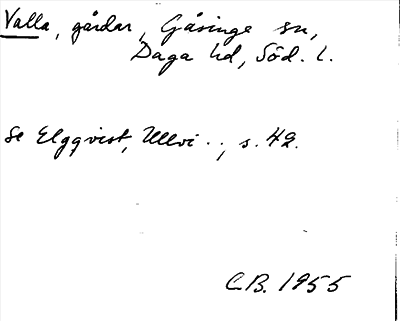 Valla, gårdar, Gåsinge sn,
Daga hd, Söd. l.
Se Elgqvist, Ullvi.., s. 42.
C.B. 1955